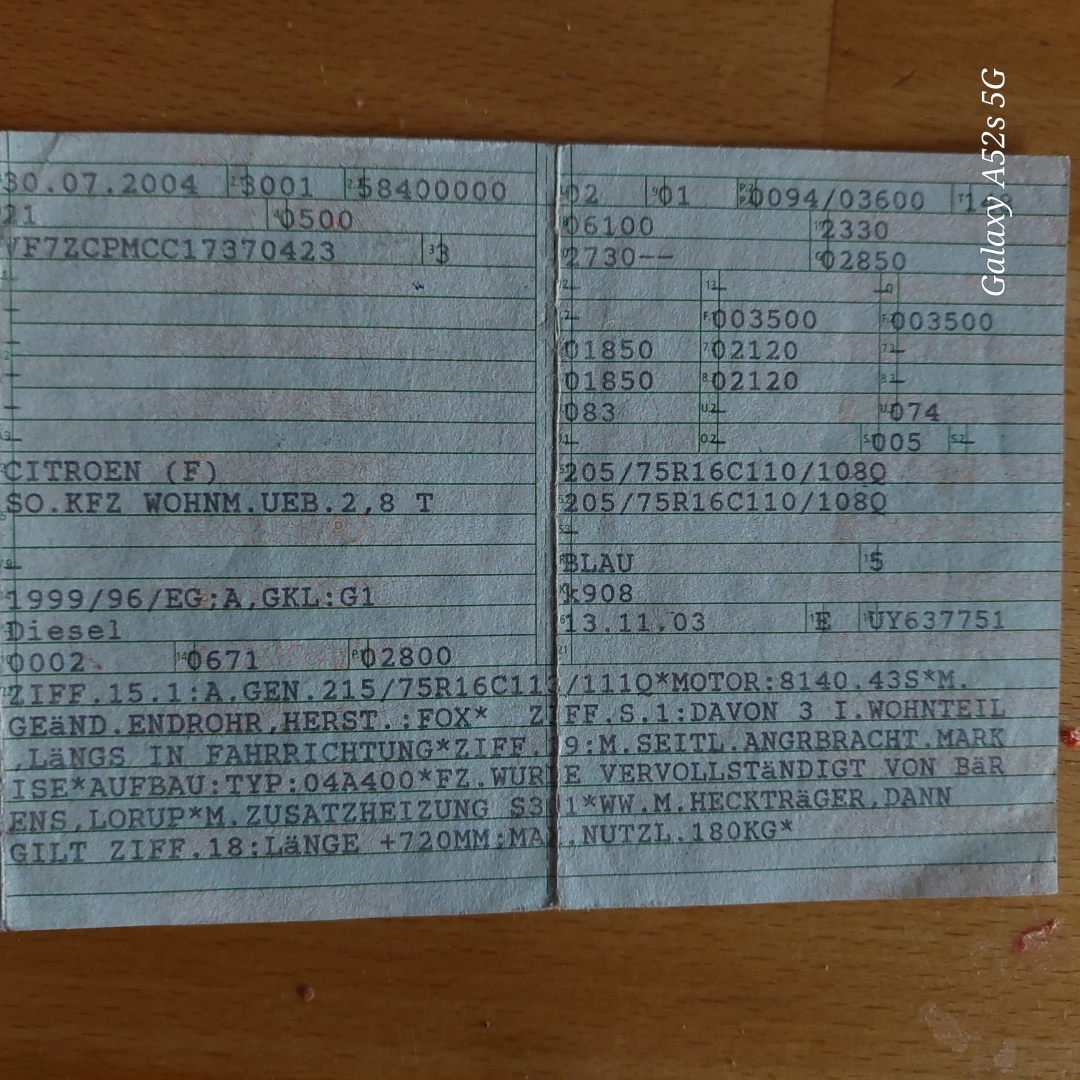 30.07.2004 3001 58400000
21 0500
VF7ZCPMCC17370423 3
CITROEN (F)
SO.KFZ WOHNM.UEB.2,8 T
1999/96/EG;A,GKL:G1
Diesel
0002 0671 02800
02 01 0094/03600
06100 2330
2730-- 02850
003500 003500
01850 02120
01850 02120
083 074
005
205/75R16C110/108Q
205/75R16C110/108Q
BLAU 5
k908
13.11.03 E UY637751
ZIFF.15.1:A.GEN.215/75R16C113/111Q*MOTOR:8140.43S*M.
GEäND.ENDROHR,HERST.:FOX* ZIFF.S.1:DAVON 3 I.WOHNTEIL
,LäNGS IN FAHRRICHTUNG*ZIFF. 9:M.SEITL.ANGRBRACHT.MARK
ISE*AUFBAU:TYP:04A400*FZ.WURDE VERVOLLSTäNDIGT VON BäR
ENS,LORUP*M.ZUSATZHEIZUNG *WW.M.HECKTRäGER,DANN
GILT ZIFF.18:LäNGE +720MM;MAX.NUTZL.180KG*
Galaxy A52s 5G